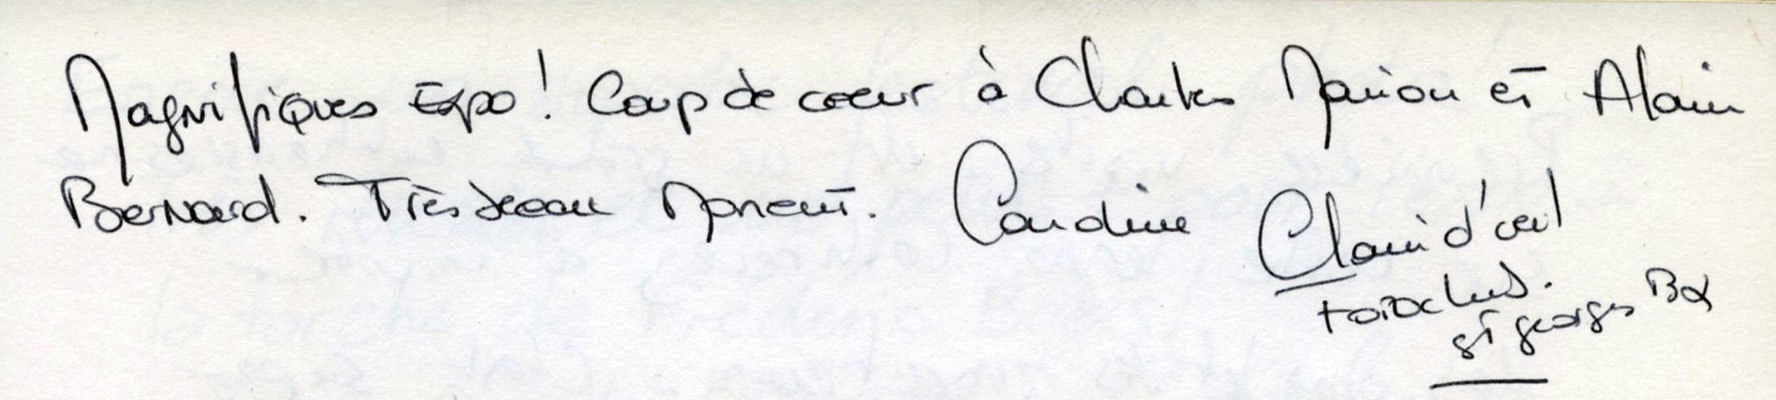 Magnifiques Expo ! Coup de coeur à Charles Marion et Alain
Bernard. Très beau Moment. Caroline Clair d'oeil
St georges BX